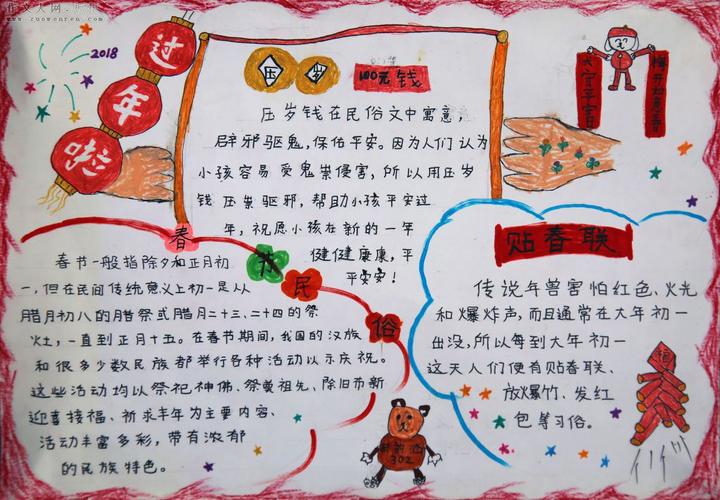 www.zuowenren.com
2018
过
年
啦
压 岁
100元 钱
压岁钱在民俗文中寓意，
辟邪驱鬼，保佑平安。因为人们认为
小孩容易受鬼祟侵害，所以用压岁
钱压祟驱邪，帮助小孩平安过
年，祝愿小孩在新的一年
健健康康，平
平安安！
春
节
民
俗
春节一般指除夕和正月初
一，但在民间传统意义上初一是从
腊月初八的腊祭或腊月二十三、二十四的祭
灶，一直到正月十五。在春节期间，我国的汉族
和很多少数民族都举行各种活动以示庆祝。
这些活动均以祭祀神佛、祭奠祖先、除旧布新
迎喜接福、祈求丰年为主要内容、
活动丰富多彩，带有浓郁
的民族特色。
贴春联
传说年兽害怕红色、火光
和爆炸声，而且通常在大年初一
出没，所以每到大年初一
这天人们便有贴春联、
放爆竹、发红
包等习俗。
302